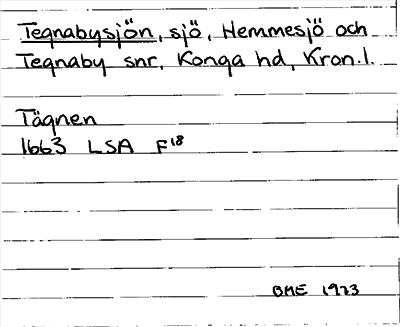 Tegnabysjön, sjö, Hemmesjö och
Tegnaby snr, Konga hd, Kron.l.
Tägnen
1663 LSA F18
BME 1973